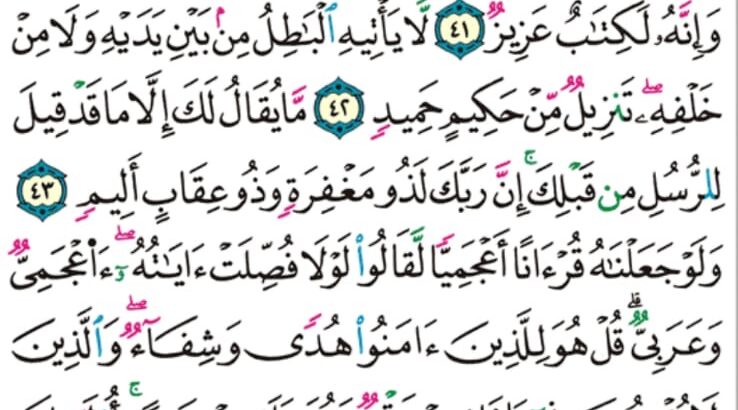 وَإِنَّهُۥ لَكِتَٰبٌ عَزِيزٌ ٤١ لَّا يَأْتِيهِ ٱلْبَٰطِلُ مِنۢ بَيْنِ يَدَيْهِ وَلَا مِنْ
خَلْفِهِۦۖ تَنزِيلٌ مِّنْ حَكِيمٍ حَمِيدٍ ٤٢ مَّا يُقَالُ لَكَ إِلَّا مَا قَدْ قِيلَ
لِلرُّسُلِ مِن قَبْلِكَۚ إِنَّ رَبَّكَ لَذُو مَغْفِرَةٍ وَذُو عِقَابٍ أَلِيمٍ ٤٣
وَلَوْ جَعَلْنَٰهُ قُرْءَانًا أَعْجَمِيًّا لَّقَالُوا۟ لَوْلَا فُصِّلَتْ ءَايَٰتُهُۥٓۖ ءَا۬عْجَمِىٌّ
وَعَرَبِىٌّۗ قُلْ هُوَ لِلَّذِينَ ءَامَنُوا۟ هُدًى وَشِفَآءٌۖ وَٱلَّذِينَ